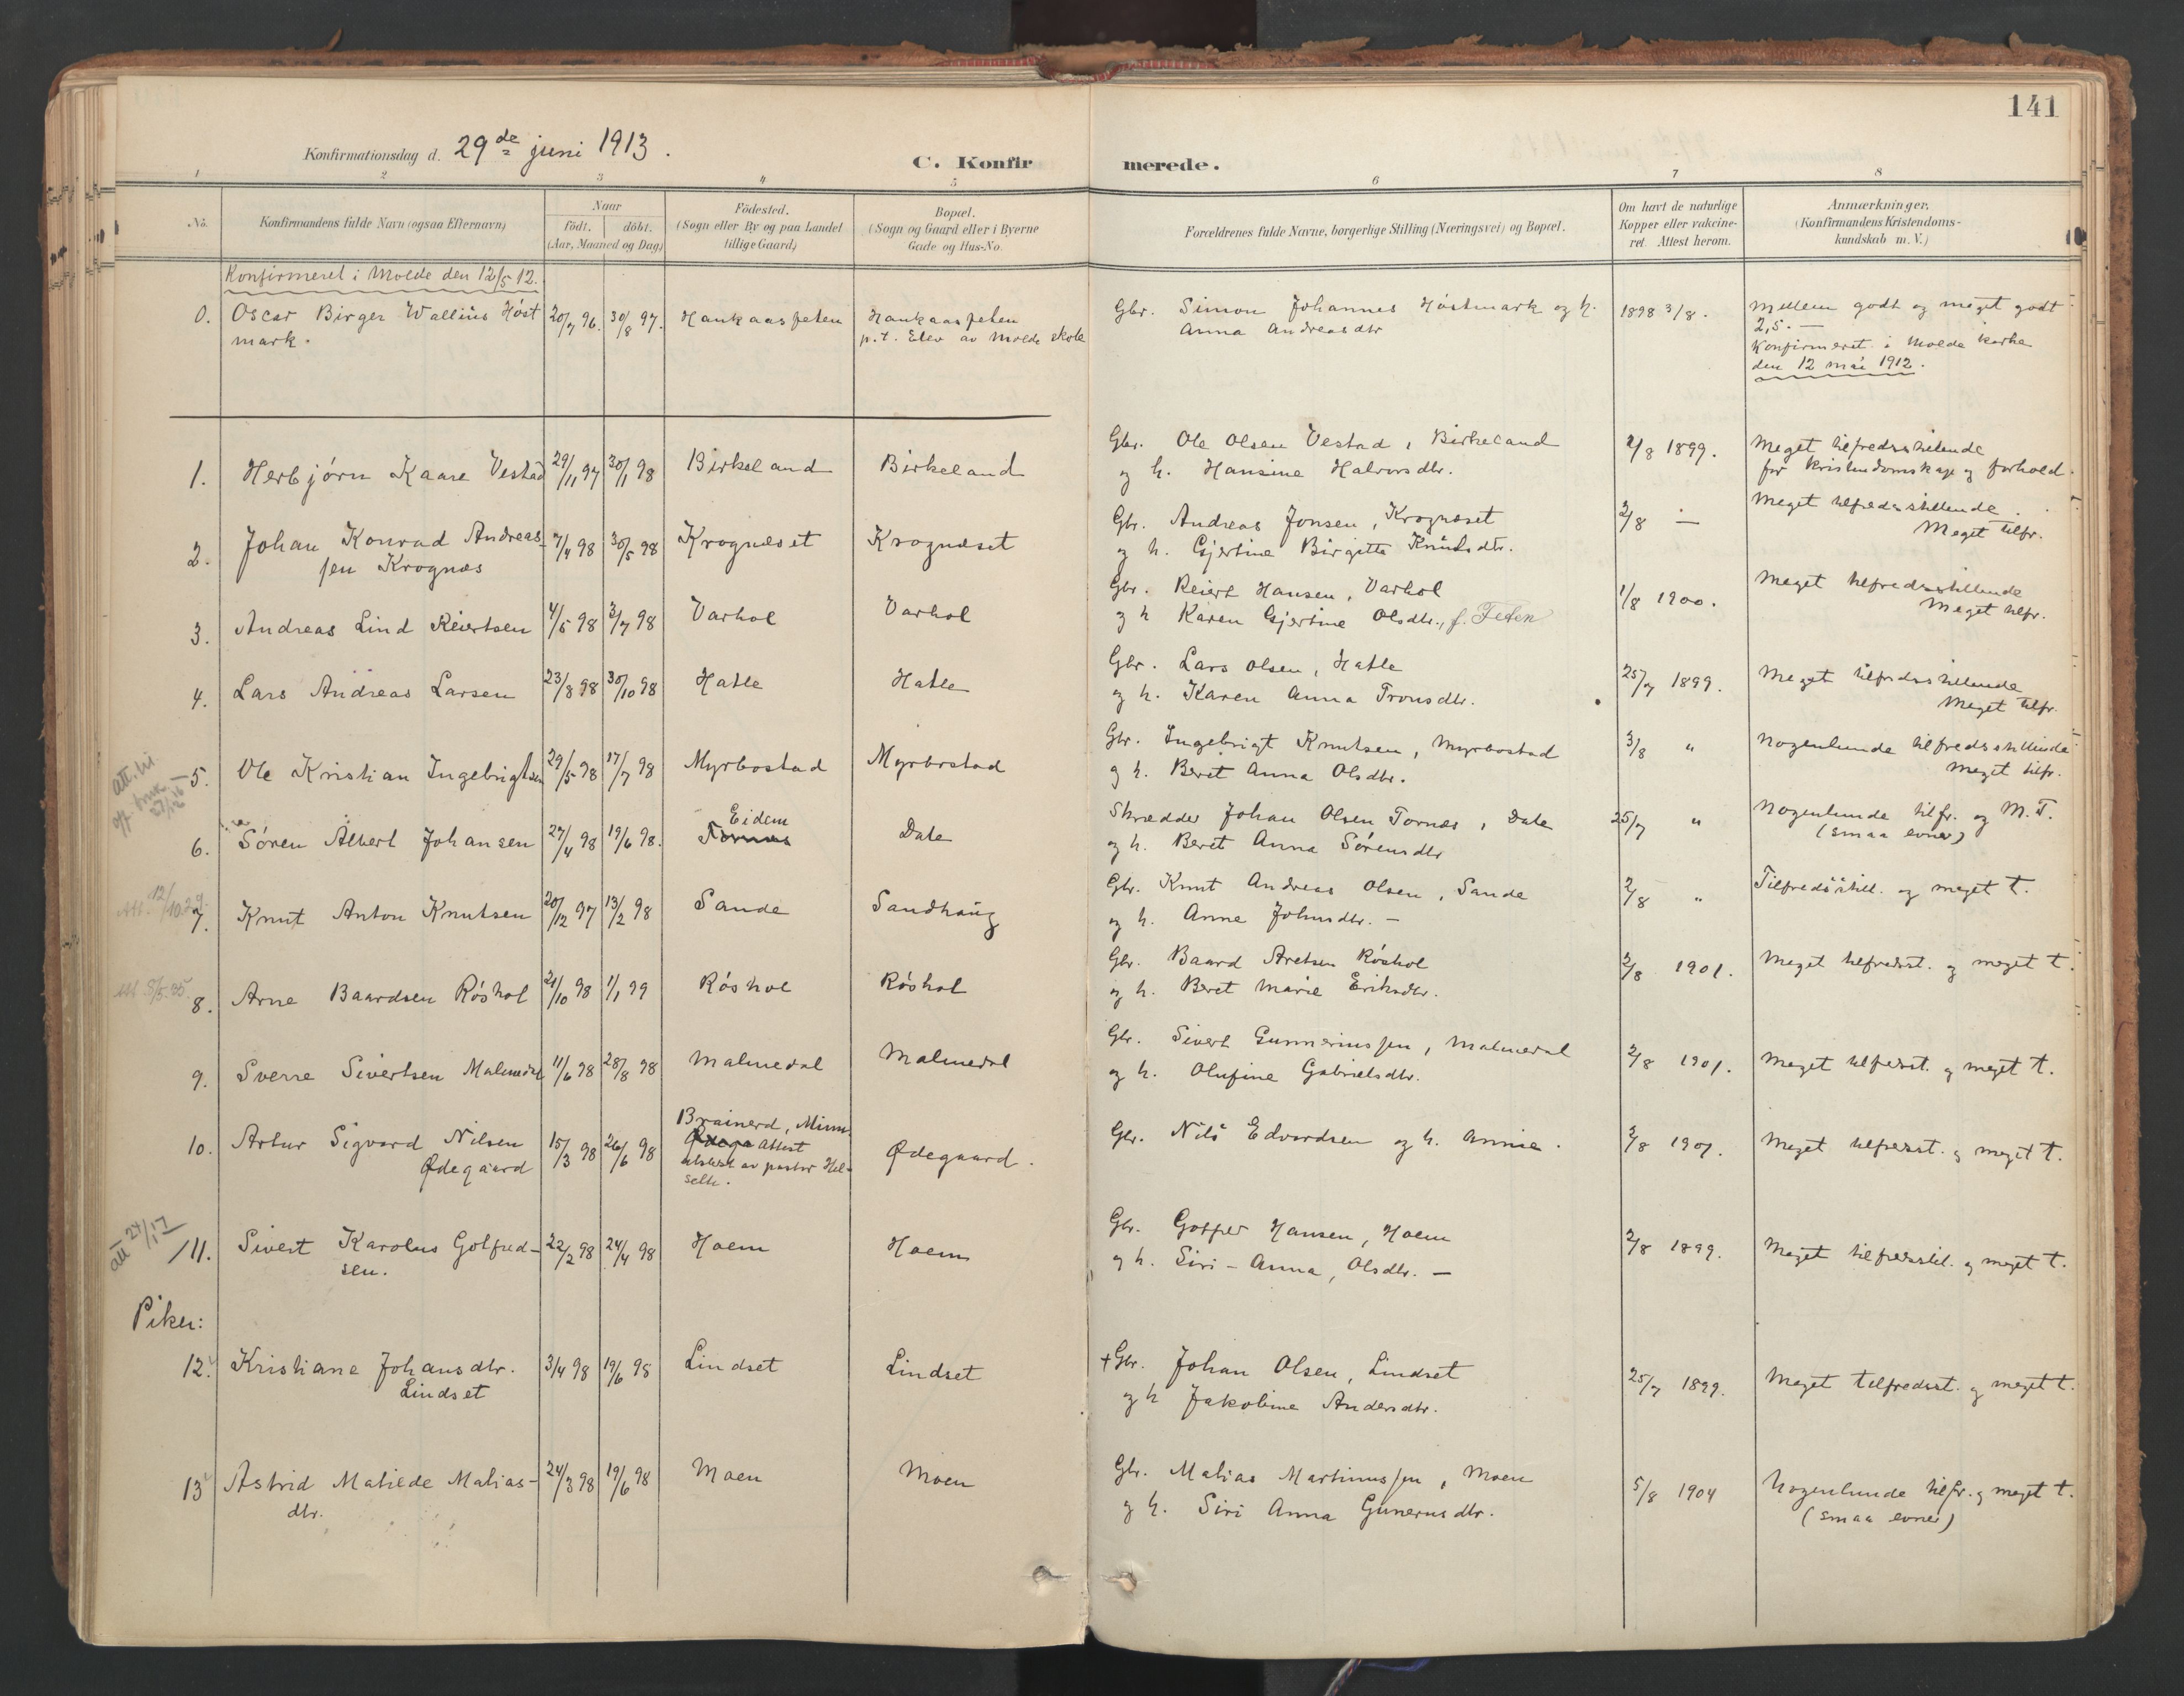 141
Konfirmationsdag d. 29de juni 1913.
C. Konfirmerede.
1 2 3 4 5 6 7 8
No.
Konfirmandens fulde Navn (ogsaa Efternavn)
Naar
født. døbt.
(Aar, Maaned og Dag)
Fødested.
(Sogn eller By og paa Landet
tillige Gaard)
Bopæl.
(Sogn og Gaard eller i Byerne
Gade og Hus-No.
Forældrenes fulde Navne, borgerlige Stilling (Næringsvei) og Bopæl.
Om havt de naturlige
Kopper eller vakcine-
ret. Attest herom.
Anmærkninger.
(Konfirmandens Kristendoms-
kundskab m. V.)
Konfirmeret i Molde den 12/5 12.
0. Oscar Birger Wallius Høst 20/7 96. 30/8 97. Haukaasfeten Haukaasfeten Gbr. Simon Johannes Høstmark og h. 1898 3/8. Mellem godt og meget godt
mark. p.t. Elev av Molde skole Anna Andreasdtr 2,5. —
Konfirmeret i Molde kirke
den 12 mai 1912.
1. Herbjørn Kaare Vestad 29/11 97 30/1 98 Birkeland Birkeland Gbr. Ole Olsen Vestad, Birkeland 2/8 1899. Meget tilfredsstillende
og h. Hansine Halvorsdtr. for kristendomskap og forhold.
2. Johan Konrad Andreas- 7/4 98 30/5 98 Krognæset Krognæset Gbr. Andreas Jonsen, Krognæset 2/8 — Meget tilfredsstillende.
sen Krognæs og h. Gjertine Birgitte Knutsdtr. Meget tilfr.
3. Andreas Lind Reiertsen 4/5 98 3/7 98 Varhol Varhol Gbr. Reiert Hansen, Varhol 1/8 1900. Meget tilfredsstillende
og h Karen Gjertine Olsdtr., f. Feten Meget tilfr.
4. Lars Andreas Larsen 23/8 98 30/10 98 Hatle Hatle Gbr. Lars Olsen, Hatle 25/7 1899. Meget tilfredsstillende
og h. Karen Anna Tronsdtr. Meget tilfr.
att. til
5. Ole Kristian Ingebrigtsen 29/5 98 17/7 98 Myrbostad Myrbostad Gbr. Ingebrigt Knutsen, Myrbostad 3/8 " Nogenlunde tilfredsstillende
og h. Beret Anna Olsdtr. Meget tilfr.
6. Søren Albert Johansen 27/4 98 19/6 98. Eidem Tornæs Dale Skrædder Johan Olsen Tornæs, Dale 25/7 " Nogenlunde tilfr. og M.T.
og h. Beret Anna Sørensdtr (smaa evner)
Att. 12/10 29.
7. Knut Anton Knutsen 20/12 97 13/2 98 Sande Sandhaug Gbr. Knut Andreas Olsen, Sande 2/8 " Tilfredsstill. og meget t.
og h. Anne Johnsdtr. —
att 5/5.35.
8. Arne Baardsen Røshol 21/10 98 1/1 99 Røshol Røshol Gbr. Baard Aretsen Røshol 2/8 1901. Meget tilfredsst. og meget t.
og h. Beret Marie Eriksdtr.
9. Sverre Sivertsen Malmedal 11/6 98 28/8 98 Malmedal Malmedal Gbr. Sivert Gunneriussen, Malmedal 2/8 1901. Meget tilfredsst. og meget t.
og h. Olufine Gabrielsdtr.
10. Artur Sigvard Nilsen 15/3 98 26/6 98 Brainerd, Minn. Ødegaard. Gbr. Nils Edvardsen og h. Annie. 2/8 1901. Meget tilfredsst. og meget t.
Ødegaard Attest
utstedt av pastor Hel-
seth.
att 24/1 17
11. Sivert Karolus Gotfred- 22/2 98 24/4 98 Hoem Hoem Gbr. Gotfred Hansen, Hoem 2/8 1899. Meget tilfredsstil. og meget t.
sen. og h. Siri-Anna, Olsdtr. —
Piker:
12. Kristiane Johansdtr. 3/4 98 19/6 98 Lindset Lindset +Gbr. Johan Olsen, Lindset 25/7 1899. Meget tilfredsst. og meget t.
Lindset og h Jakobine Andersdtr.
13 Astrid Matilde Matias- 24/3 98 19/6 98 Moen Moen Gbr. Matias Martinussen, Moen 5/8 1904 Nogenlunde tilfr. og meget t.
dtr. og h. Siri Anna Gunerusdtr. (smaa evner)